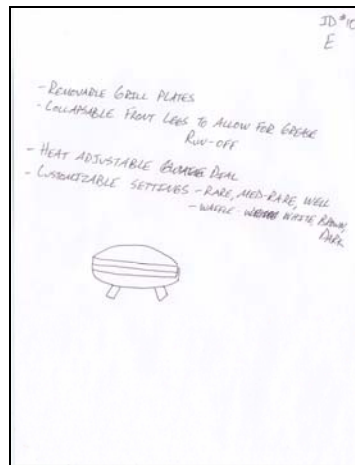 ID #10
E
- REMOVABLE GRILL PLATES
- COLLAPSABLE FRONT LEGS TO ALLOW FOR GREASE
RUN-OFF
- HEAT ADJUSTABLE DIAL
- CUSTOMIZABLE SETTINGS - RARE, MED-RARE, WELL
- WAFFLE - WHITE, BROWN,
DARK